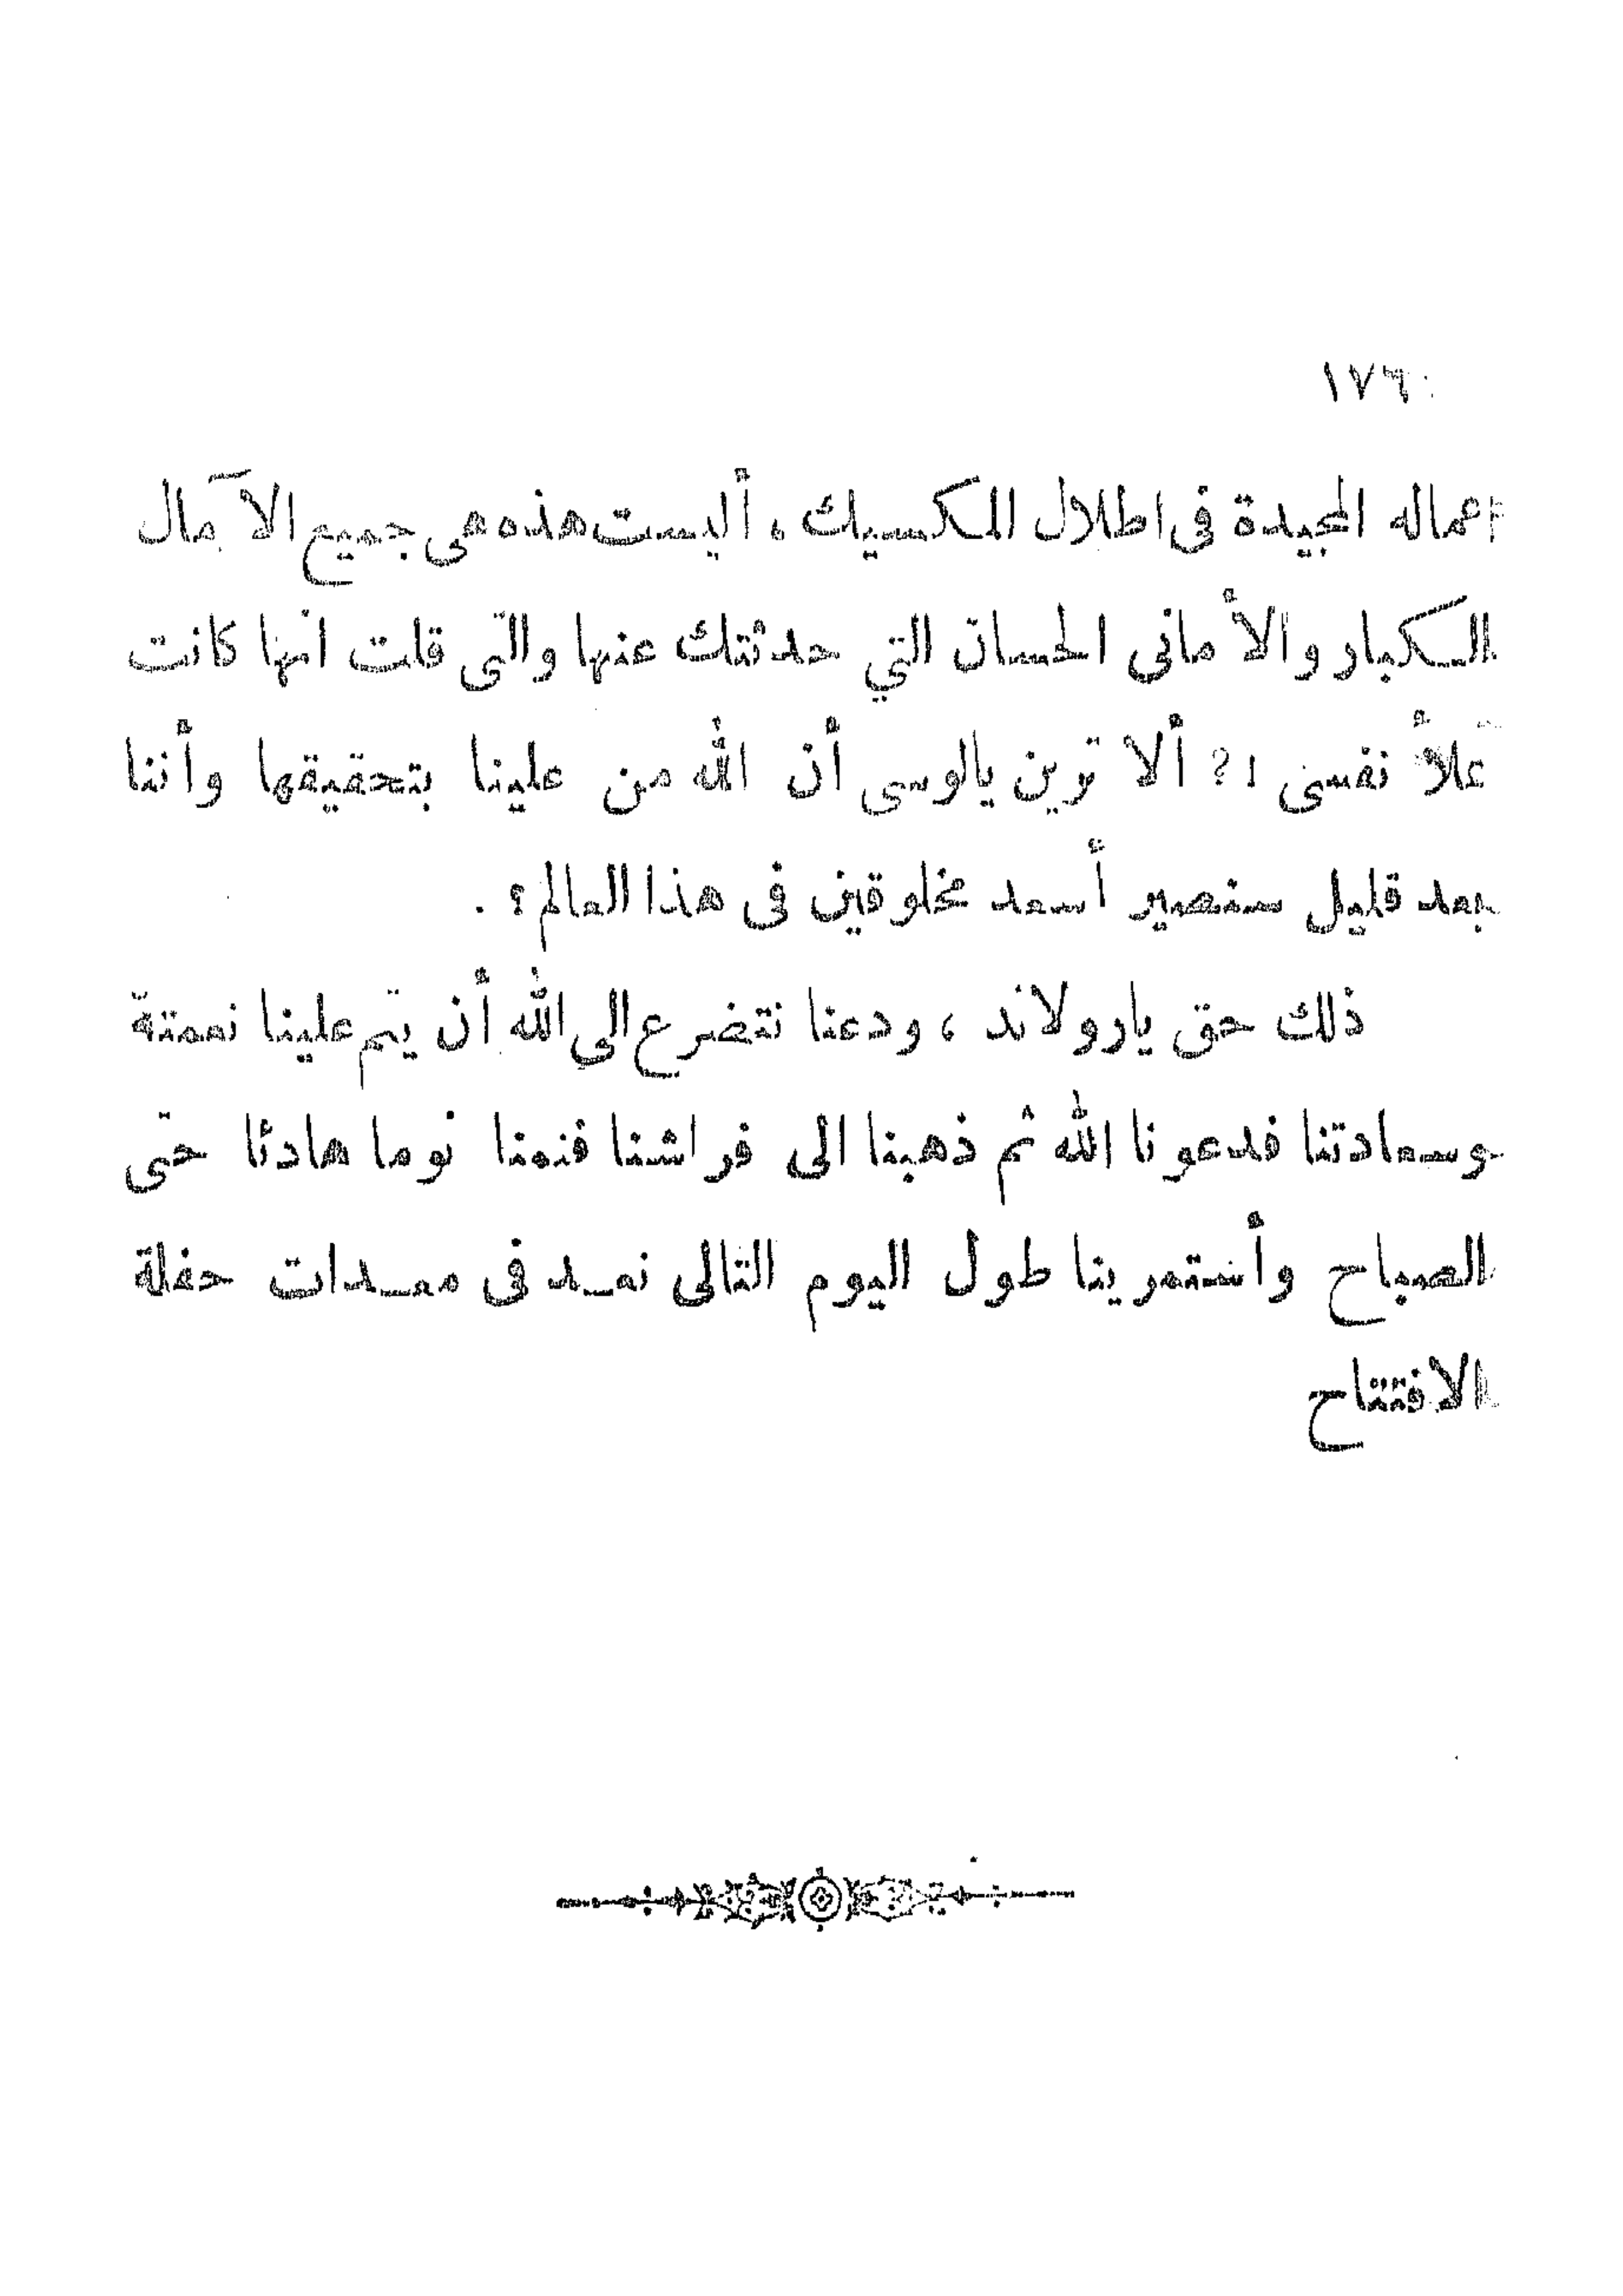 ١٧٦
اعماله المجيدة فى اطلال المكسيك ، أليست هذه هى جميع الآمال
الكبار والأمانى الحسان التي حدثتك عنها والتى قلت انها كانت
تملأ نفسى !؟ ألا ترين يالوسى أن الله من علينا بتحقيقها وأننا
بعد قليل سنصير أسعد مخلوقين فى هذا العالم ؟ .
ذلك حق يارولاند ، ودعنا نتضرع الى الله أن يتم علينا نعمتة
وسعادتنا فدعونا الله ثم ذهبنا الى فراشنا فنمنا نوما هادئا حتى
الصباح وأستمرينا طول اليوم التالى نعد فى معدات حفلة
الافتتاح